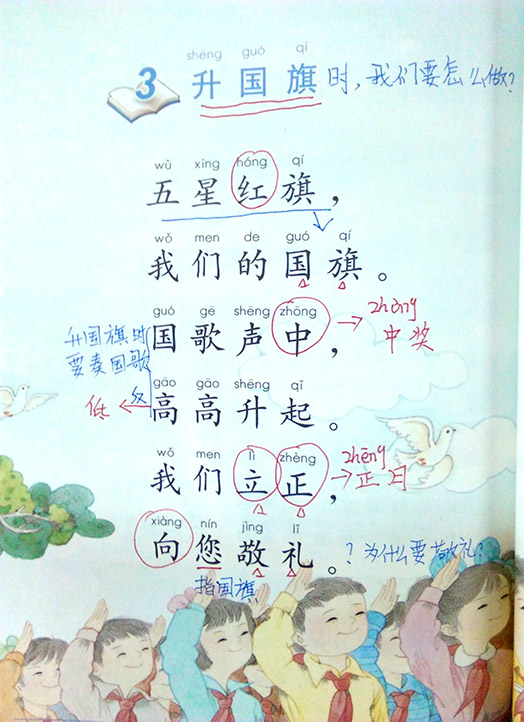 shēng guó qí
3 升国旗时,我们要怎么做?
wǔ xīng hóng qí
五星红旗,
wǒ men de guó qí
我们的国旗。
guó gē shēng zhōng zhòng
国歌声中, → 中奖
升国旗时
要奏国歌
gāo gāo shēng qǐ
低 ← 反 高高升起。
wǒ men lì zhèng zhēng
我们立正, → 正月
xiàng nín jìng lǐ
向您敬礼。?为什么要敬礼?
指国旗